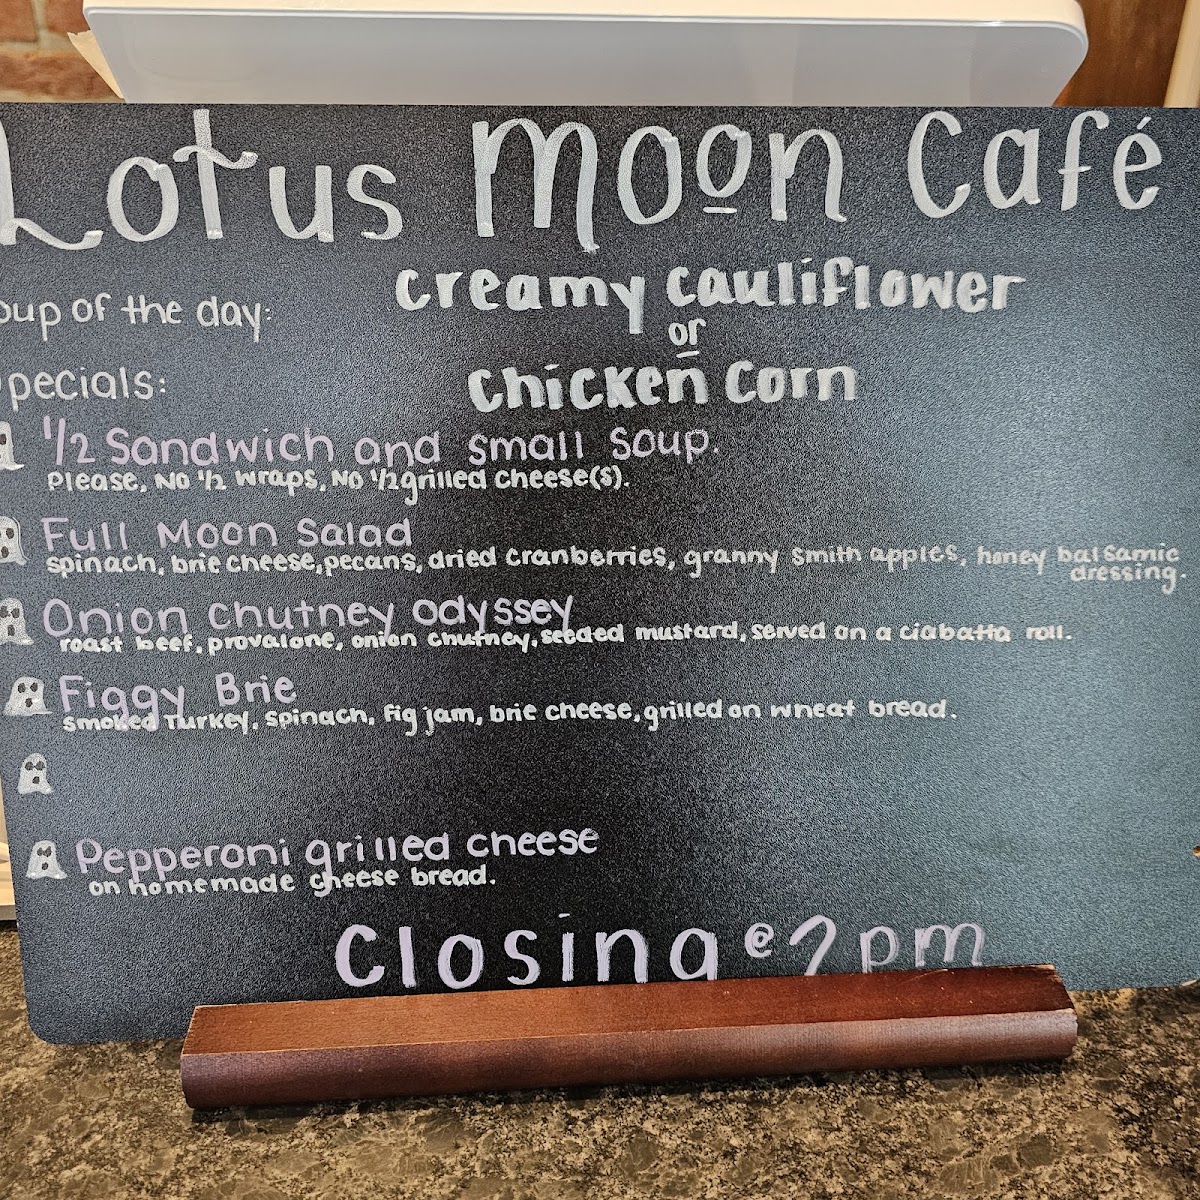 Lotus Moon Café
oup of the day:
creamy cauliflower
or
chicken corn
pecials:
1/2 Sandwich and small soup.
Please, NO 1/2 wraps, NO 1/2 grilled cheese(s).
Full Moon Salad
spinach, brie cheese, pecans, dried cranberries, granny smith apples, honey balsamic
dressing.
Onion Chutney Odyssey
roast beef, provalone, onion chutney, seeded mustard, served on a ciabatta roll.
Figgy Brie
smoked Turkey, spinach, fig jam, brie cheese, grilled on wheat bread.
Pepperoni grilled cheese
on homemade cheese bread.
closing @ 2pm